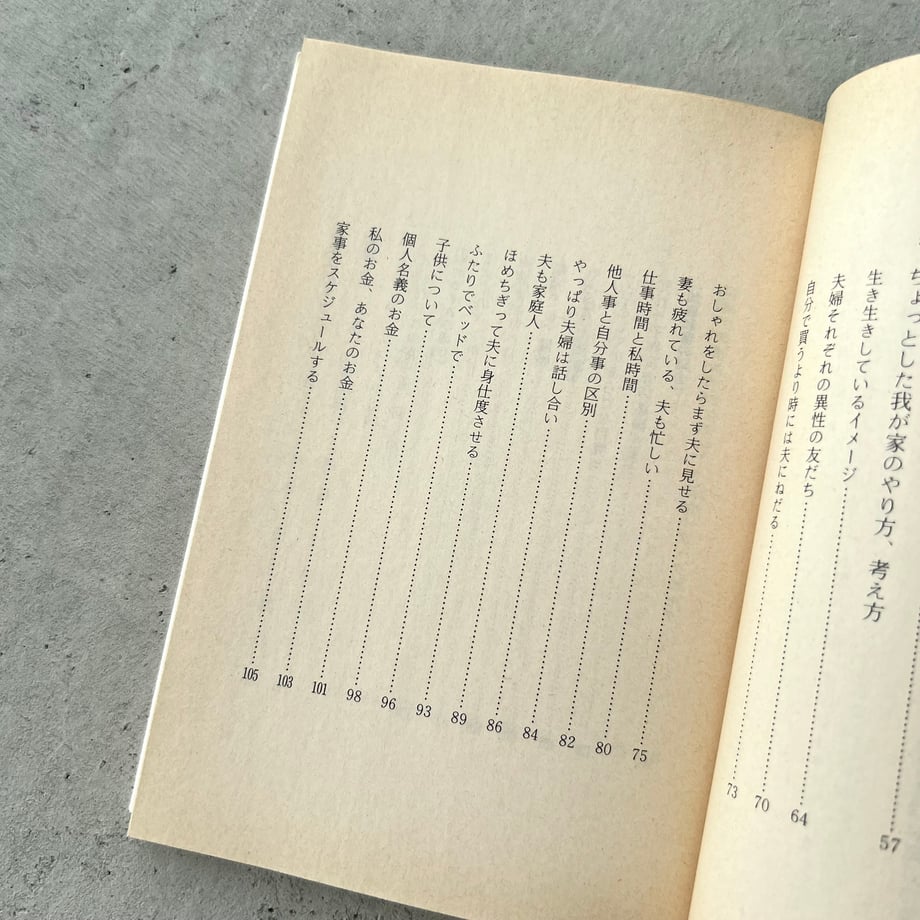 57
ちょっとした我が家のやり方、考え方
生き生きしているイメージ…………64
夫婦それぞれの異性の友だち…………70
自分で買うより時には夫にねだる…………73
おしゃれをしたらまず夫に見せる…………75
妻も疲れている、夫も忙しい…………80
仕事時間と私時間…………82
他人事と自分事の区別…………84
やっぱり夫婦は話し合い…………86
夫も家庭人…………89
ほめちぎって夫に身仕度させる…………93
ふたりでベッドで…………96
子供について…………98
個人名義のお金…………101
私のお金、あなたのお金…………103
家事をスケジュールする…………105